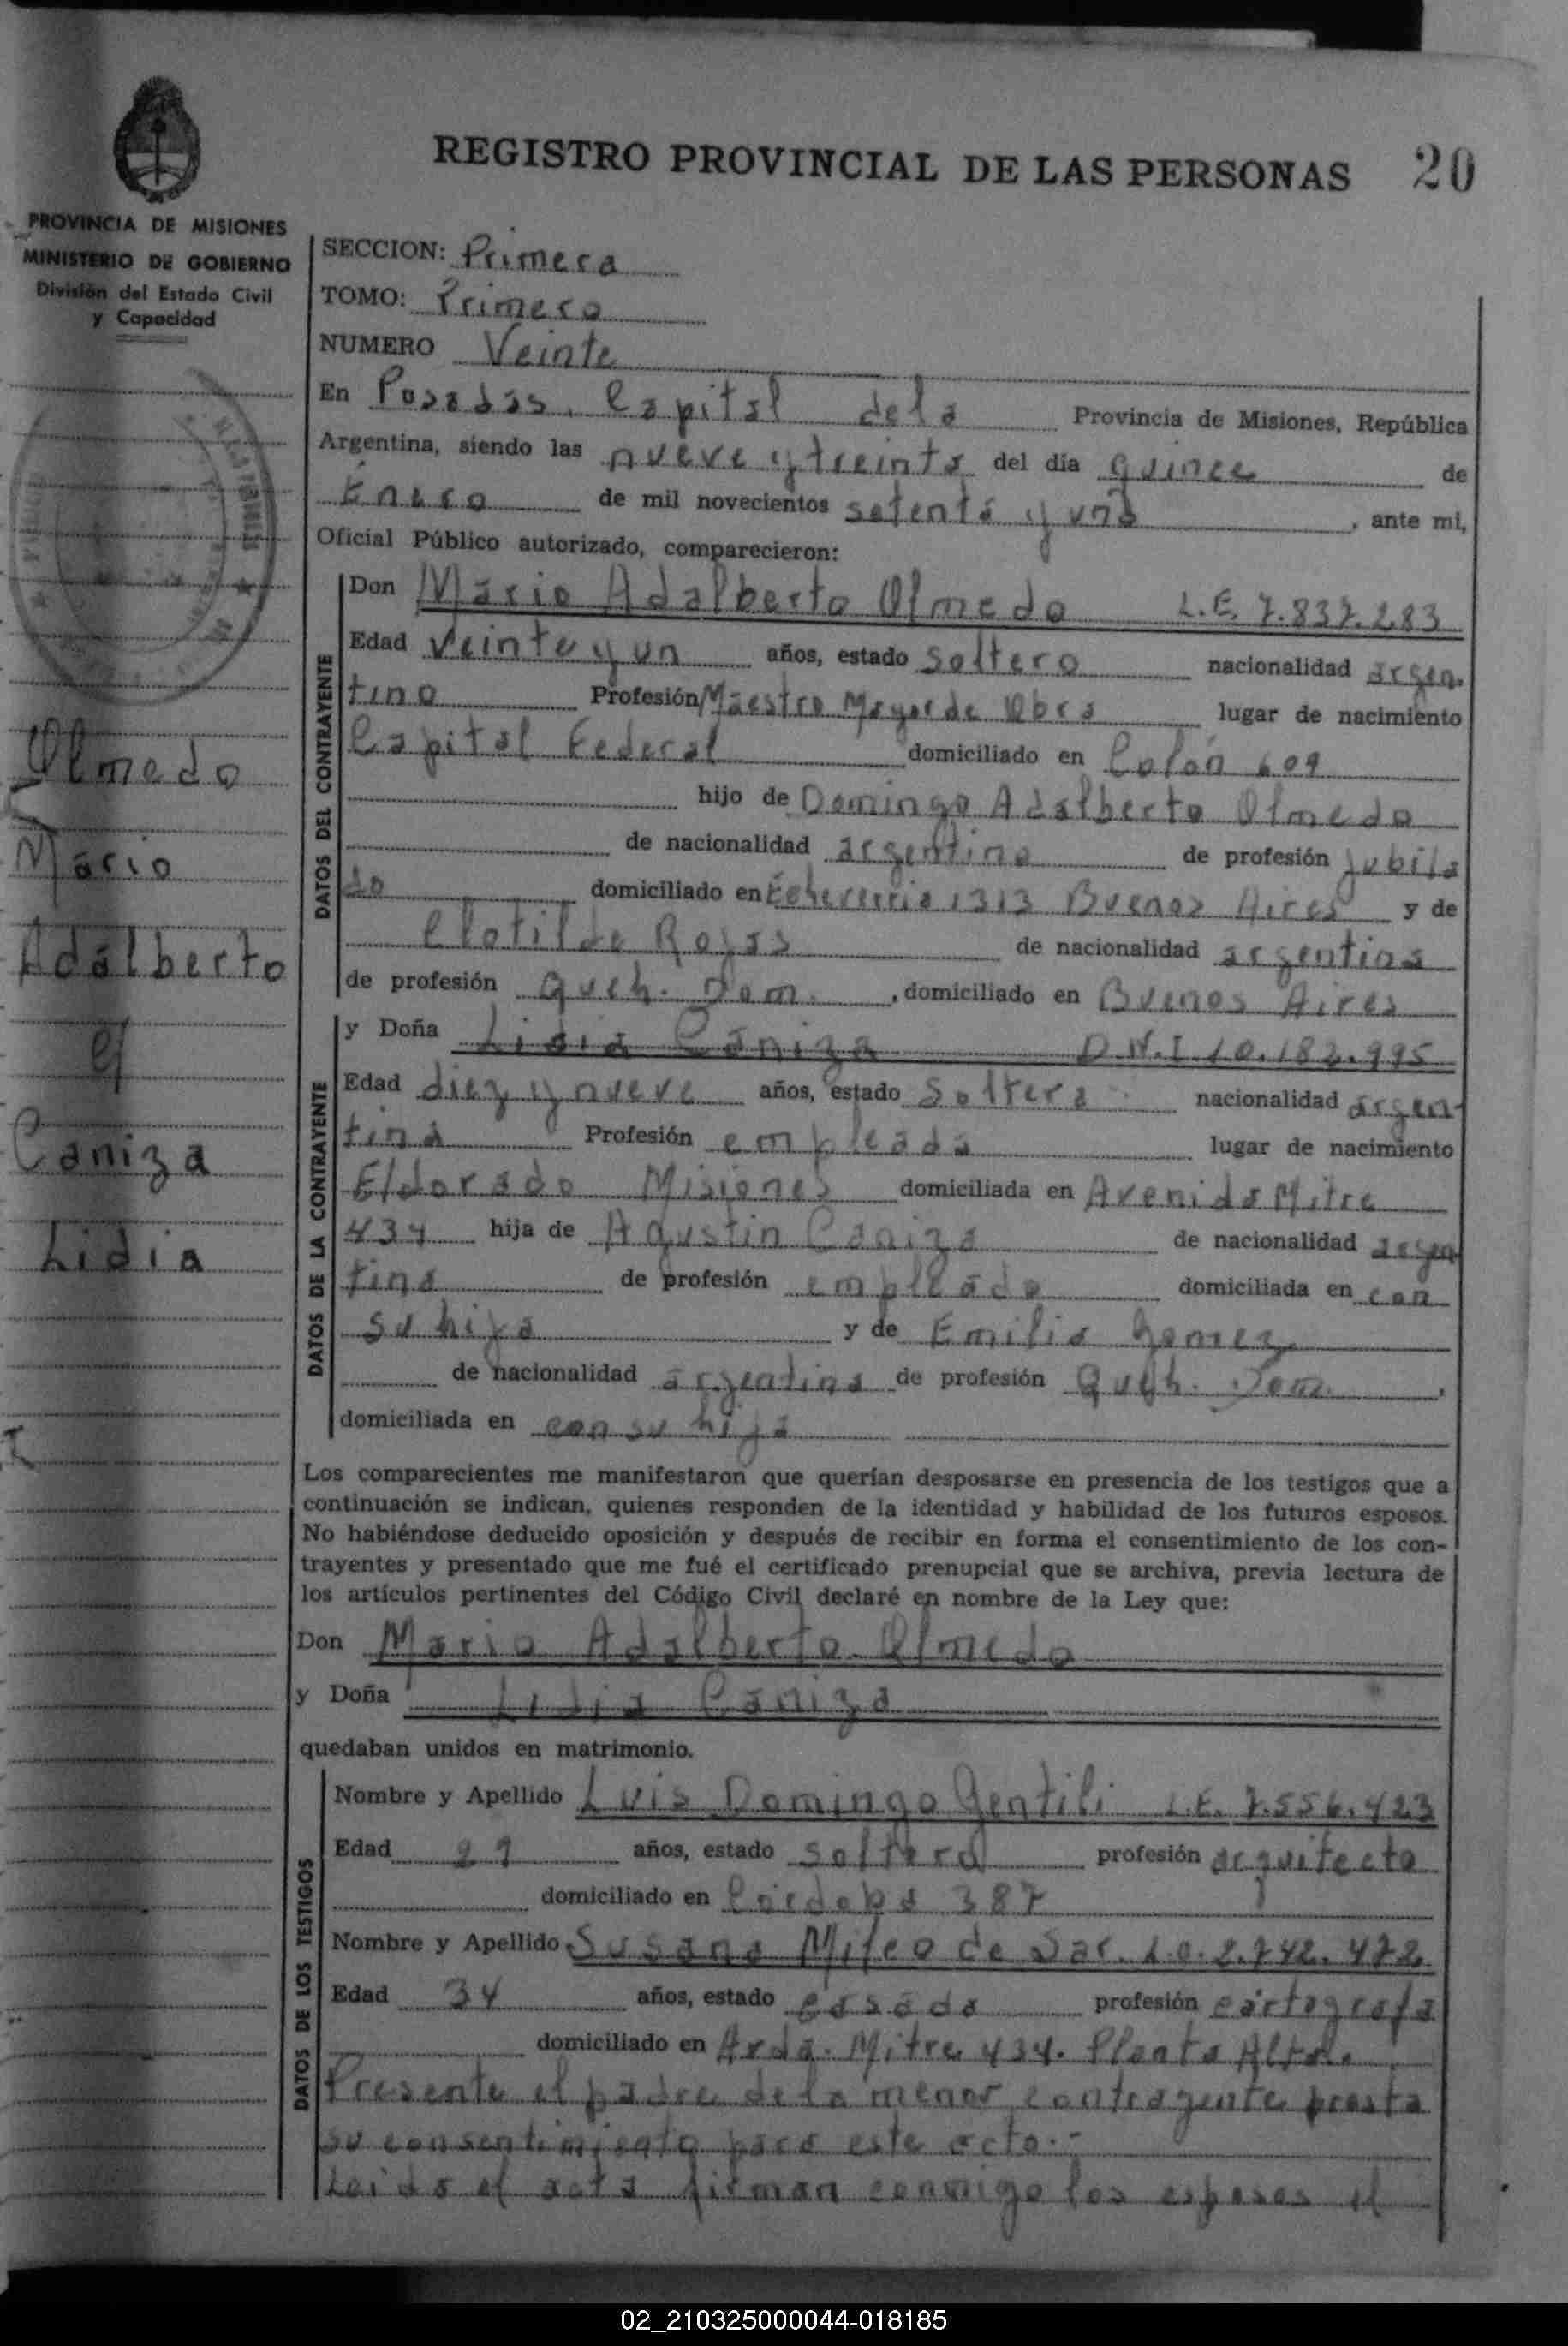 REGISTRO PROVINCIAL DE LAS PERSONAS 20
PROVINCIA DE MISIONES
MINISTERIO DE GOBIERNO
División del Estado Civil
y Capacidad
Olmedo
Mario
Adalberto
y
Caniza
Lidia
SECCION: Primera
TOMO: Primero
NUMERO Veinte
En Posadas, Capital de la Provincia de Misiones, República
Argentina, siendo las nueve y treinta del día quince de
Enero de mil novecientos setenta y uno, ante mi,
Oficial Público autorizado, comparecieron:
DATOS DEL CONTRAYENTE
Don Mario Adalberto Olmedo L.E. 7.837.283
Edad Veinte y un años, estado soltero nacionalidad argen-
tino Profesión Maestro Mayor de Obra lugar de nacimiento
Capital Federal domiciliado en Colón 609
hijo de Domingo Adalberto Olmedo
de nacionalidad argentino de profesión Jubila
do domiciliado en Echeverria 1313 Buenos Aires y de
Clotilde Rojas de nacionalidad argentina
de profesión Queh. Dom., domiciliado en Buenos Aires
DATOS DE LA CONTRAYENTE
y Doña Lidia Caniza D.N.I. 10.182.995
Edad diez y nueve años, estado soltera nacionalidad argen-
tina Profesión empleada lugar de nacimiento
Eldorado Misiones domiciliada en Avenida Mitre
434 hija de Agustin Caniza de nacionalidad argen
tina de profesión empleado domiciliada en con
su hija y de Emilia Gomez
de nacionalidad argentina de profesión Queh. Dom.,
domiciliada en con su hija
Los comparecientes me manifestaron que querían desposarse en presencia de los testigos que a
continuación se indican, quienes responden de la identidad y habilidad de los futuros esposos.
No habiéndose deducido oposición y después de recibir en forma el consentimiento de los con-
trayentes y presentado que me fué el certificado prenupcial que se archiva, previa lectura de
los artículos pertinentes del Código Civil declaré en nombre de la Ley que:
Don Mario Adalberto Olmedo
y Doña Lidia Caniza
quedaban unidos en matrimonio.
DATOS DE LOS TESTIGOS
Nombre y Apellido Luis Domingo Gentili L.E. 7.556.423
Edad años, estado soltero profesión arquitecto
domiciliado en Córdoba 387
Nombre y Apellido Susana Mileo de Sar. L.C. 2.742.472
Edad 34 años, estado casada profesión cartografa
domiciliado en Avda. Mitre 434. Planta Alta.
Presente el padre de la menor contrayente presta
su consentimiento para este acto.-
Leida el acta firman conmigo los esposos el
02_210325000044-018185